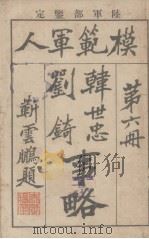 陸軍部鑒定
模範軍人
第六冊
韓世忠
劉錡
事略
靳雲鵬題